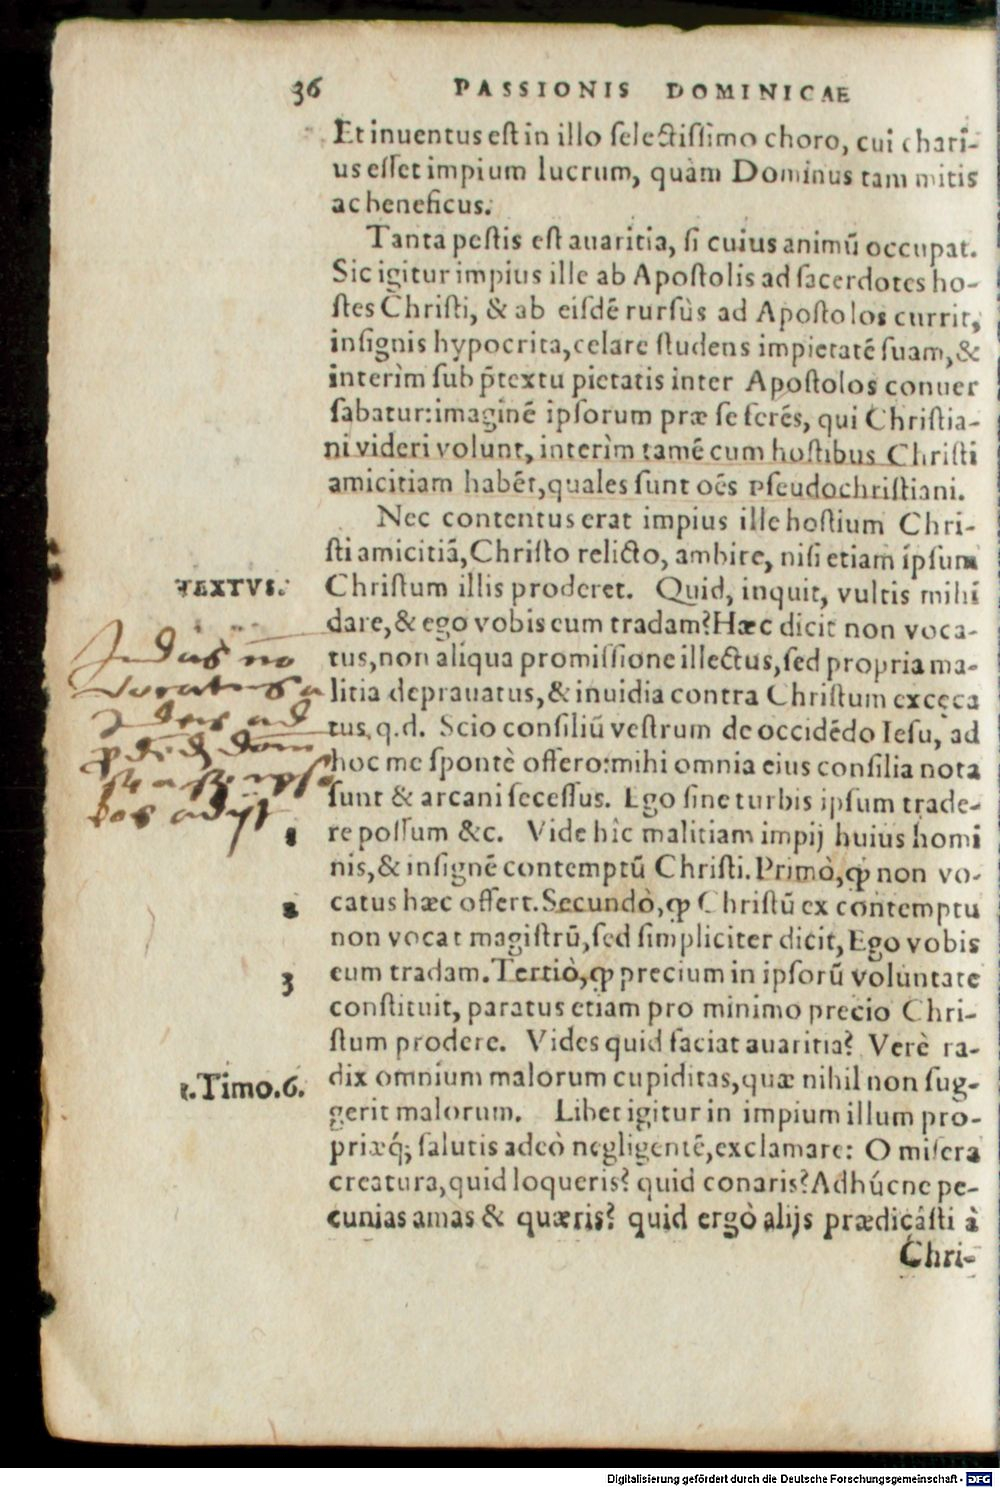 36 PASSIONIS DOMINICAE
Et inuentus est in illo selectissimo choro, cui chari-
us esset impium lucrum, quàm Dominus tam mitis
ac beneficus.
Tanta pestis est auaritia, si cuius animũ occupat.
Sic igitur impius ille ab Apostolis ad sacerdotes ho-
stes Christi, & ab eisdẽ rursùs ad Apostolos currit,
insignis hypocrita, celare studens impietatẽ suam, &
interìm sub p̃textu pietatis inter Apostolos conuer
sabatur: imaginẽ ipsorum præ se ferẽs, qui Christia-
ni videri volunt, interìm tamẽ cum hostibus Christi
amicitiam habẽt, quales sunt oẽs pseudochristiani.
Nec contentus erat impius ille hostium Chri-
sti amicitiã, Christo relicto, ambire, nisi etiam ipsum
TEXTVS.
Christum illis proderet. Quid, inquit, vultis mihi
dare, & ego vobis eum tradam? Hæc dicit non voca-
tus, non aliqua promissione illectus, sed propria ma-
litia deprauatus, & inuidia contra Christum excęca
tus. q.d. Scio consiliũ vestrum de occidẽdo Iesu, ad
hoc me spontè offero: mihi omnia eius consilia nota
sunt & arcani secessus. Ego sine turbis ipsum trade-
re possum &c. Vide hîc malitiam impij huius homi
nis, & insignẽ contemptũ Christi. Primò, ꝙ non vo-
catus hæc offert. Secundò, ꝙ Christũ ex contemptu
non vocat magistrũ, sed simpliciter dicit, Ego vobis
eum tradam. Tertiò, ꝙ precium in ipsorũ voluntate
constituit, paratus etiam pro minimo precio Chri-
stum prodere. Vides quid faciat auaritia? Verè ra-
dix omnium malorum cupiditas, quæ nihil non sug-
gerit malorum. Libet igitur in impium illum pro-
priæq́; salutis adeò negligentẽ, exclamare: O misera
creatura, quid loqueris? quid conaris? Adhúcne pe-
cunias amas & quæris? quid ergò alijs prædicâsti à
Chri-
Judas no
vocatus a
Judeis ad
1
2
3
1.Timo.6.
Digitalisierung gefördert durch die Deutsche Forschungsgemeinschaft - DFG